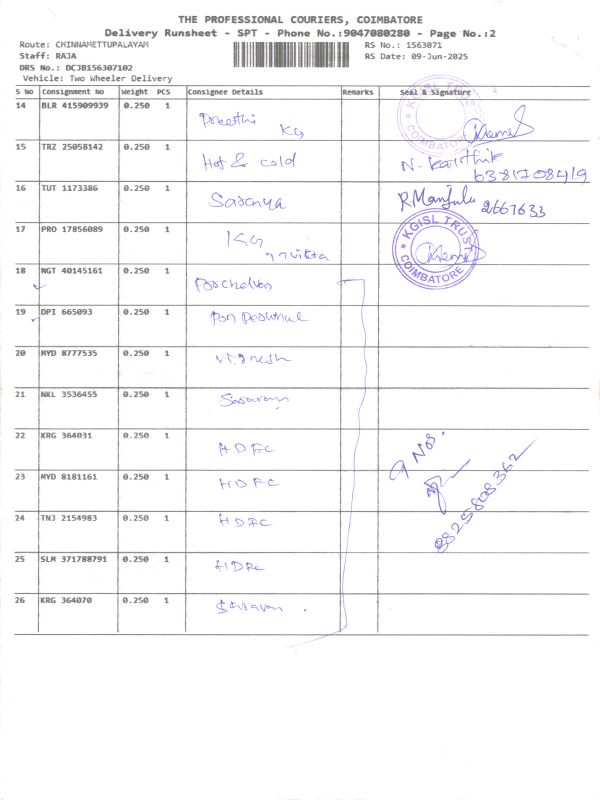 THE PROFESSIONAL COURIERS, COIMBATORE
Delivery Runsheet - SPT - Phone No.:9047080280 - Page No.:2
Route: CHINNAMETTUPALAYAM RS No.: 1563071
Staff: RAJA RS Date: 09-Jun-2025
DRS No.: DCJB156307102
Vehicle: Two Wheeler Delivery
S No Consignment No Weight PCS Consignee Details Remarks Seal & Signature
14 BLR 415909939 0.250 1 Preethi KG
15 TRZ 25058142 0.250 1 Hot & cold N. Karthik
6381708419
16 TUT 1173386 0.250 1 Saranya R. Manjula 2667633
17 PRO 17856089 0.250 1 KG KGISL TRUST COIMBATORE
18 NGT 40145161 0.250 1
19 DPI 665093 0.250 1
20 MYD 8777535 0.250 1 Vignesh
21 NKL 3536455 0.250 1
22 KRG 364031 0.250 1 HDFC 9 Nos.
23 MYD 8181161 0.250 1 HDFC
24 TNJ 2154983 0.250 1 HDFC
25 SLM 371788791 0.250 1 HDFC
26 KRG 364070 0.250 1